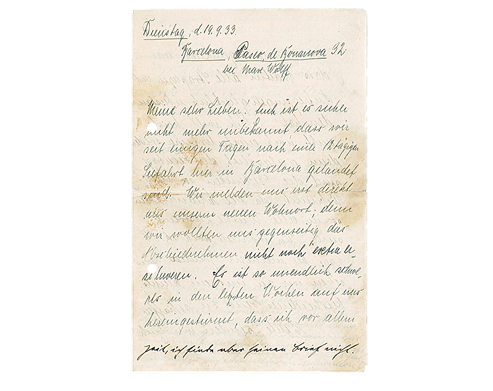 Dienstag, d. 19.9.33.
Barcelona, Paseo de Bonanova 92
bei Max Wolff
Meine sehr Lieben! Euch ist es sicher
nicht mehr unbekannt dass wir
seit einigen Tagen nach einer 12 tägigen
Seefahrt hier in Barcelona gelandet
sind. Wir melden uns erst direkt
aus unserm neuen Wohnort, denn
wir wollten uns gegenseitig das
Abschiednehmen nicht noch extra er-
schweren. Es ist so unendlich schwe-
res in den letzten Wochen auf uns
hereingestürmt, dass ich vor allem
ich finde aber keinen Brief nicht.